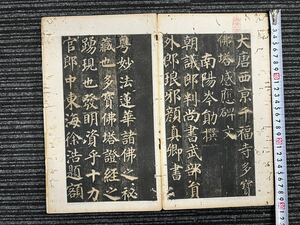 大唐西京千福寺多寶
佛塔感應碑文
南陽岑勛撰
朝議郎判尚書武部員
外郎琅邪顏真卿書
粵妙法蓮華諸佛之秘
藏也多寶佛塔證經之
踴現也發明資乎十力
官郎中東海徐浩題額